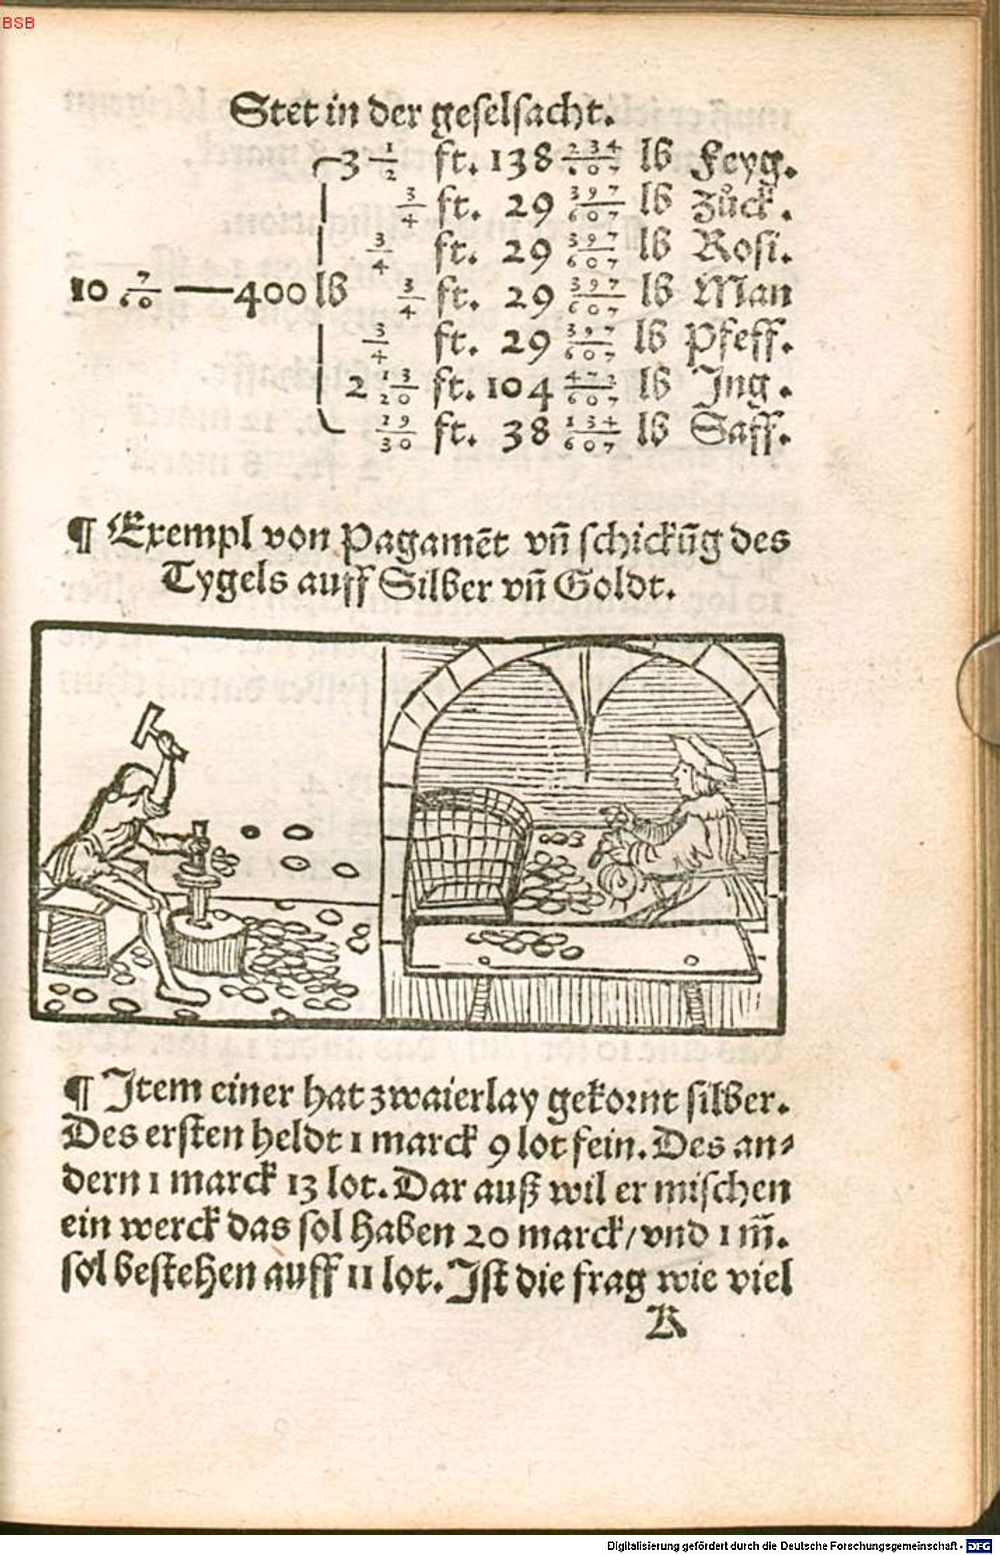 BSB
Stet in der geselsacht.
3 1/2 ft. 138 234/607 lb Feyg.
3/4 ft. 29 397/607 lb Zůck.
3/4 ft. 29 397/607 lb Rosi.
10 7/60 — 400 lb 3/4 ft. 29 397/607 lb Man
3/4 ft. 29 397/607 lb Pfeff.
2 13/20 ft. 104 472/607 lb Jng.
29/30 ft. 38 134/607 lb Saff.
¶ Exempl von Pagamēt vn̄ schickūg des
Tygels auff Silber vn̄ Goldt.
¶ Jtem einer hat zwaierlay gekornt silber.
Des ersten heldt 1 marck 9 lot fein. Des an⸗
dern 1 marck 13 lot. Dar auß wil er mischen
ein werck das sol haben 20 marck/ vnd 1 m̄.
sol bestehen auff 11 lot. Jst die frag wie viel
K
Digitalisierung gefördert durch die Deutsche Forschungsgemeinschaft - DFG